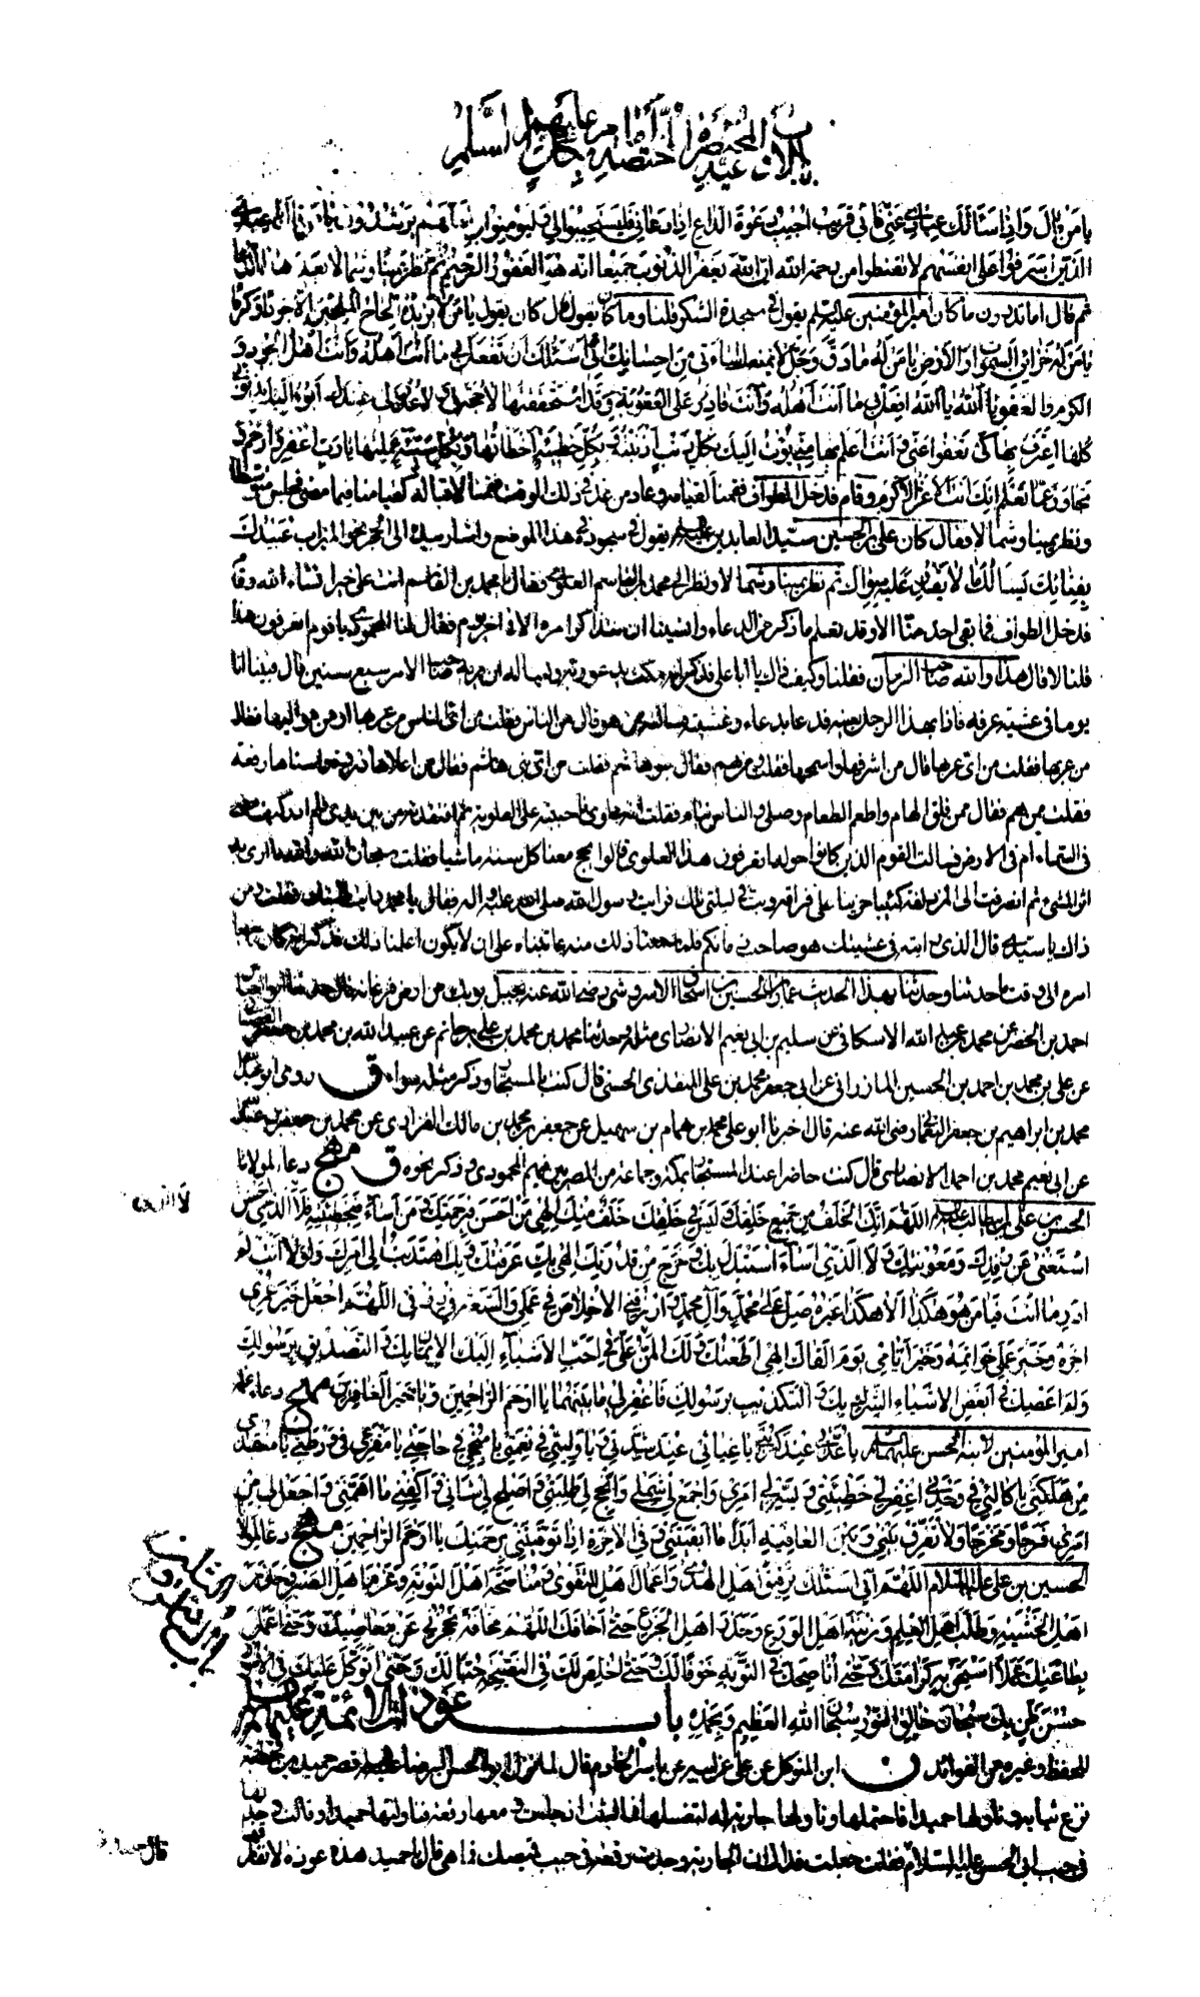 باب الادعية المختصرة
عليهم السلام
يا من قال واذا سألك عبادي عني فاني قريب اجيب دعوة الداع اذا دعان فليستجيبوا لي وليؤمنوا بي لعلهم يرشدون
الذين اسرفوا على انفسهم لا تقنطوا من رحمة الله ان الله يغفر الذنوب جميعا انه هو الغفور الرحيم ثم نظر يمينا وشمالا بعد هذا الدعا
ثم قال اما تدرون ما كان امير المؤمنين عليه السلم يقول في سجدة الشكر فقلنا وما كان يقول قال كان يقول يا من لا يزيده الحاح الملحين الا جودا وكرما
يا من له خزائن السموات والارض يا من له ما دق وجل لا تمنعك اساءتي من احسانك اني اسئلك ان تفعل بي ما انت اهله وانت اهل الجود و
الكرم والعفو يا الله يا الله افعل بي ما انت اهله وانت قادر على العقوبة وقد استحققتها لا حجة لي ولا عذر لي عندك ابوء اليك بذنوبي
كلها اعترف بها كي تعفو عني وانت اعلم بها مني بؤت اليك بكل ذنب اذنبته وبكل خطيئة اخطأتها وبكل سيئة عملتها يا رب اغفر وارحم و
تجاوز عما تعلم انك انت الاعز الاكرم وقام فدخل الطواف فقمنا لقيامه وعاد من غد في ذلك الوقت فقمنا لاقباله كفعلنا فيما مضى فجلس متوسطا
ونظر يمينا وشمالا وقال كان علي بن الحسين سيد العابدين عليه السلم يقول في سجوده في هذا الموضع واشار بيده الى الحجر نحو الميزاب عبيدك
بفنائك يسألك ما لا يقدر عليه سواك ثم نظر يمينا وشمالا ونظر الى محمد بن القاسم العلوي فقال يا محمد بن القاسم انت على خير انشاء الله وقام
فدخل الطواف فما بقي احد منا الا وقد تعلم ما ذكر من الدعاء وانسينا ان نتذاكر امره الا في اخر يوم فقال لنا المحمودي يا قوم اتعرفون هذا
قلنا لا قال هذا والله صاحب الزمان فقلنا وكيف ذاك يا ابا علي فذكر انه مكث يدعو ربه ويسأله ان يريه صاحب الامر سبع سنين قال فبينا انا
يوما في عشية عرفة فاذا بهذا الرجل بعينه فدعا بدعاء وعيته فسألته ممن هو فقال من الناس فقلت من اي الناس من عربها او من مواليها فقال
من عربها فقلت من اي عربها قال من اشرفها واسمحها فقلت ومن هم فقال بنو هاشم فقلت من اي بني هاشم فقال من اعلاها ذروة واسناها رفعة
فقلت ممن هم فقال ممن فلق الهام واطعم الطعام وصلى والناس نيام فقلت انه علوي فاحببته على العلوية ثم افتقدته من بين يدي فلم ادر كيف مضى
في السماء ام في الارض فسألت القوم الذين كانوا حوله اتعرفون هذا العلوي قالوا يحج معنا كل سنة ماشيا فقلت سبحان الله والله ما ارى به
اثر المشي ثم انصرفت الى المزدلفة كئيبا حزينا على فراقه وبت في ليلتي تلك فرأيت رسول الله صلى الله عليه وآله فقال يا محمد رأيت طلبتك فقلت ومن
ذاك يا سيدي قال الذي رأيته في عشيتك هو صاحب زمانكم فلما سمعنا ذلك منه عاتبناه على ان لا يكون اعلمنا ذلك فذكر انه كان
امره الى وقت ما حدثنا وحدثنا بهذا الحديث عمار بن الحسين بن اسحاق الاسروشني رضي الله عنه بجبل بوبك من ارض فرغانة قال حدثنا ابو العباس
احمد بن الخضر عن محمد بن عبد الله الاسكافي عن سليم بن ابي نعيم الانصاري مثله وحدثنا محمد بن محمد بن علي بن حاتم عن عبيد الله بن محمد بن جعفر القصباني
عن علي بن محمد بن احمد بن الحسين الماذرائي عن ابي جعفر محمد بن علي المنقذي الحسني قال كنت بالمستجار وذكر مثله سواء ق روى ابو عبد الله
محمد بن ابراهيم بن جعفر النعماني رضي الله عنه قال اخبرنا ابو علي محمد بن همام بن سهيل عن جعفر بن محمد بن مالك الفزاري عن محمد بن جعفر بن عبد الله
عن ابي نعيم محمد بن احمد الانصاري قال كنت حاضرا عند المستجار بمكة وجماعة من المقصرين فيهم المحمودي وذكر نحوه ق مهج دعاء لمولانا
الحسن بن علي بن ابي طالب عليه السلم اللهم انك الخلف من جميع خلقك وليس في خلقك خلف منك الهي من احسن فبرحمتك ومن اساء فبخطيئته فلا الذي احسن
استغنى عن رفدك ومعونتك ولا الذي اساء استبدل بك وخرج من قدرتك الهي بك عرفتك وبك اهتديت الى امرك ولولا انت لم
ادر ما انت فيا من هو هكذا ولا هكذا غيره صل على محمد وآل محمد وارزقني الاخلاص في عملي والسعة في رزقي اللهم اجعل خير عمري
اخره وخير عملي خواتمه وخير ايامي يوم القاك الهي اطعتك ولك المن علي في احب الاشياء اليك الايمان بك والتصديق برسولك
ولم اعصك في ابغض الاشياء الشرك بك والتكذيب برسولك فاغفر لي ما بينهما يا ارحم الراحمين ويا خير الغافرين مهج دعاء علمه
امير المؤمنين لابنه الحسن عليهما السلم يا عدتي عند كربتي يا غياثي عند شدتي ويا وليي في نعمتي يا منجحي في حاجتي يا مفزعي في ورطتي يا منقذي
من هلكتي يا كالئي في وحدتي اغفر لي خطيئتي ويسر لي امري واجمع لي شملي وانجح لي طلبتي واصلح لي شاني واكفني ما اهمني واجعل لي من
امري فرجا ومخرجا ولا تفرق بيني وبين العافية ابدا ما ابقيتني وفي الاخرة اذا توفيتني برحمتك يا ارحم الراحمين مهج دعا لمولانا
الحسين بن علي عليه السلام اللهم اني اسئلك توفيق اهل الهدى واعمال اهل التقوى ومناصحة اهل التوبة وعزم اهل الصبر وحذر
اهل الخشية وطلب اهل العلم وزينة اهل الورع وحذر اهل الجزع حتى اخافك اللهم مخافة تحجزني عن معاصيك وحتى اعمل
بطاعتك عملا استحق به كرامتك وحتى اناصحك في التوبة خوفا لك وحتى اخلص لك في النصيحة حبا لك وحتى اتوكل عليك في الامور
حسن ظن بك سبحان خالق النور سبحان الله العظيم وبحمده باب عوذات الائمة عليهم السلم
للحفظ وغيره من الفوائد ن ابن المتوكل عن علي عن ابيه عن ياسر الخادم قال لما نزل ابو الحسن الرضا عليه السلم قصر حميد بن قحطبة
نزع ثيابه وناولها حميدا فاحتملها وناولها جارية له لتغسلها فما لبثت ان جاءت ومعها رقعة فناولتها حميدا وقالت وجدتها
في جيب ابي الحسن عليه السلام فقلت جعلت فداك ان الجارية وجدت رقعة في جيب قميصك فما هي قال يا حميد هذه عوذة لا نفارقها